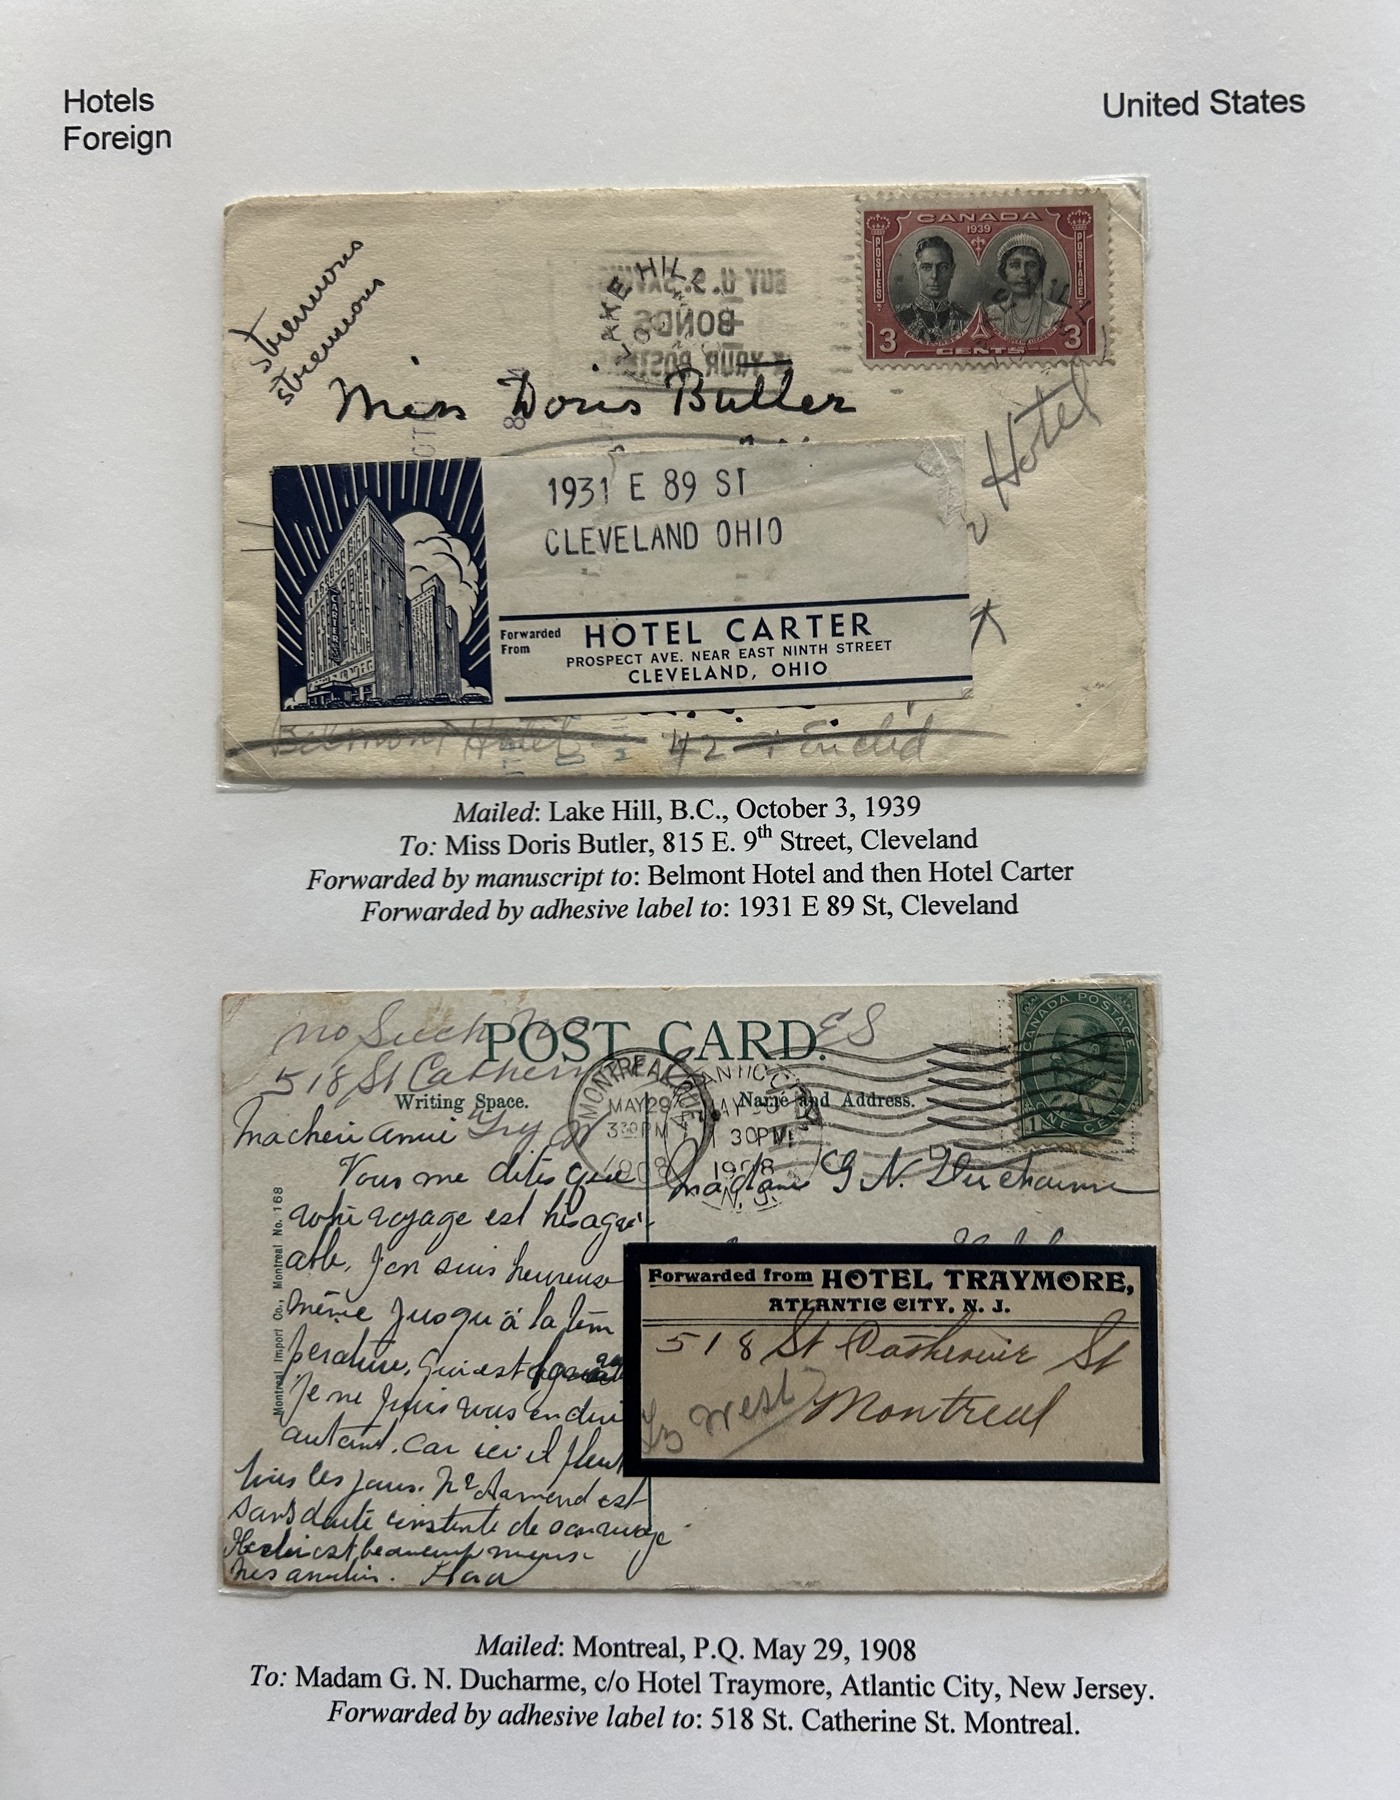 Hotels
Foreign
United States
CANADA
1939
POSTES
POSTAGE
3 CENTS 3
LAKE HILL
BUY U.S. SAVINGS
BONDS
YOUR POSTM
strenuous
strenuous
Miss Doris Butler
Hotel
1931 E 89 ST
CLEVELAND OHIO
CARTER
Forwarded
From
HOTEL CARTER
PROSPECT AVE. NEAR EAST NINTH STREET
CLEVELAND, OHIO
Belmont Hotel 42 + Euclid
Mailed: Lake Hill, B.C., October 3, 1939
To: Miss Doris Butler, 815 E. 9th Street, Cleveland
Forwarded by manuscript to: Belmont Hotel and then Hotel Carter
Forwarded by adhesive label to: 1931 E 89 St, Cleveland
no Such No
518 St Catherine
Try W
POST CARD.
ES
CANADA POSTAGE
1 ONE CENT
Writing Space.
Name and Address.
MONTREAL
MAY 29
3 30 PM
1908
ATLANTIC CITY
MAY 30
1 30PM
1908
N.J.
Ma cheri amie
Vous me dites que
votre voyage est très agré-
able, J'en suis heureuse
même jusqu'à la tem
perature, qui est
Je ne puis vous en dire
autant. car ici il pleut
tous les jours. Mr Armand est
sans doute
est beaucoup
Montreal Import Co., Montreal No. 168
Madame G. N. Ducharme
Forwarded from HOTEL TRAYMORE,
ATLANTIC CITY, N. J.
518 St Catherine St
Montreal
Try West
Mailed: Montreal, P.Q. May 29, 1908
To: Madam G. N. Ducharme, c/o Hotel Traymore, Atlantic City, New Jersey.
Forwarded by adhesive label to: 518 St. Catherine St. Montreal.